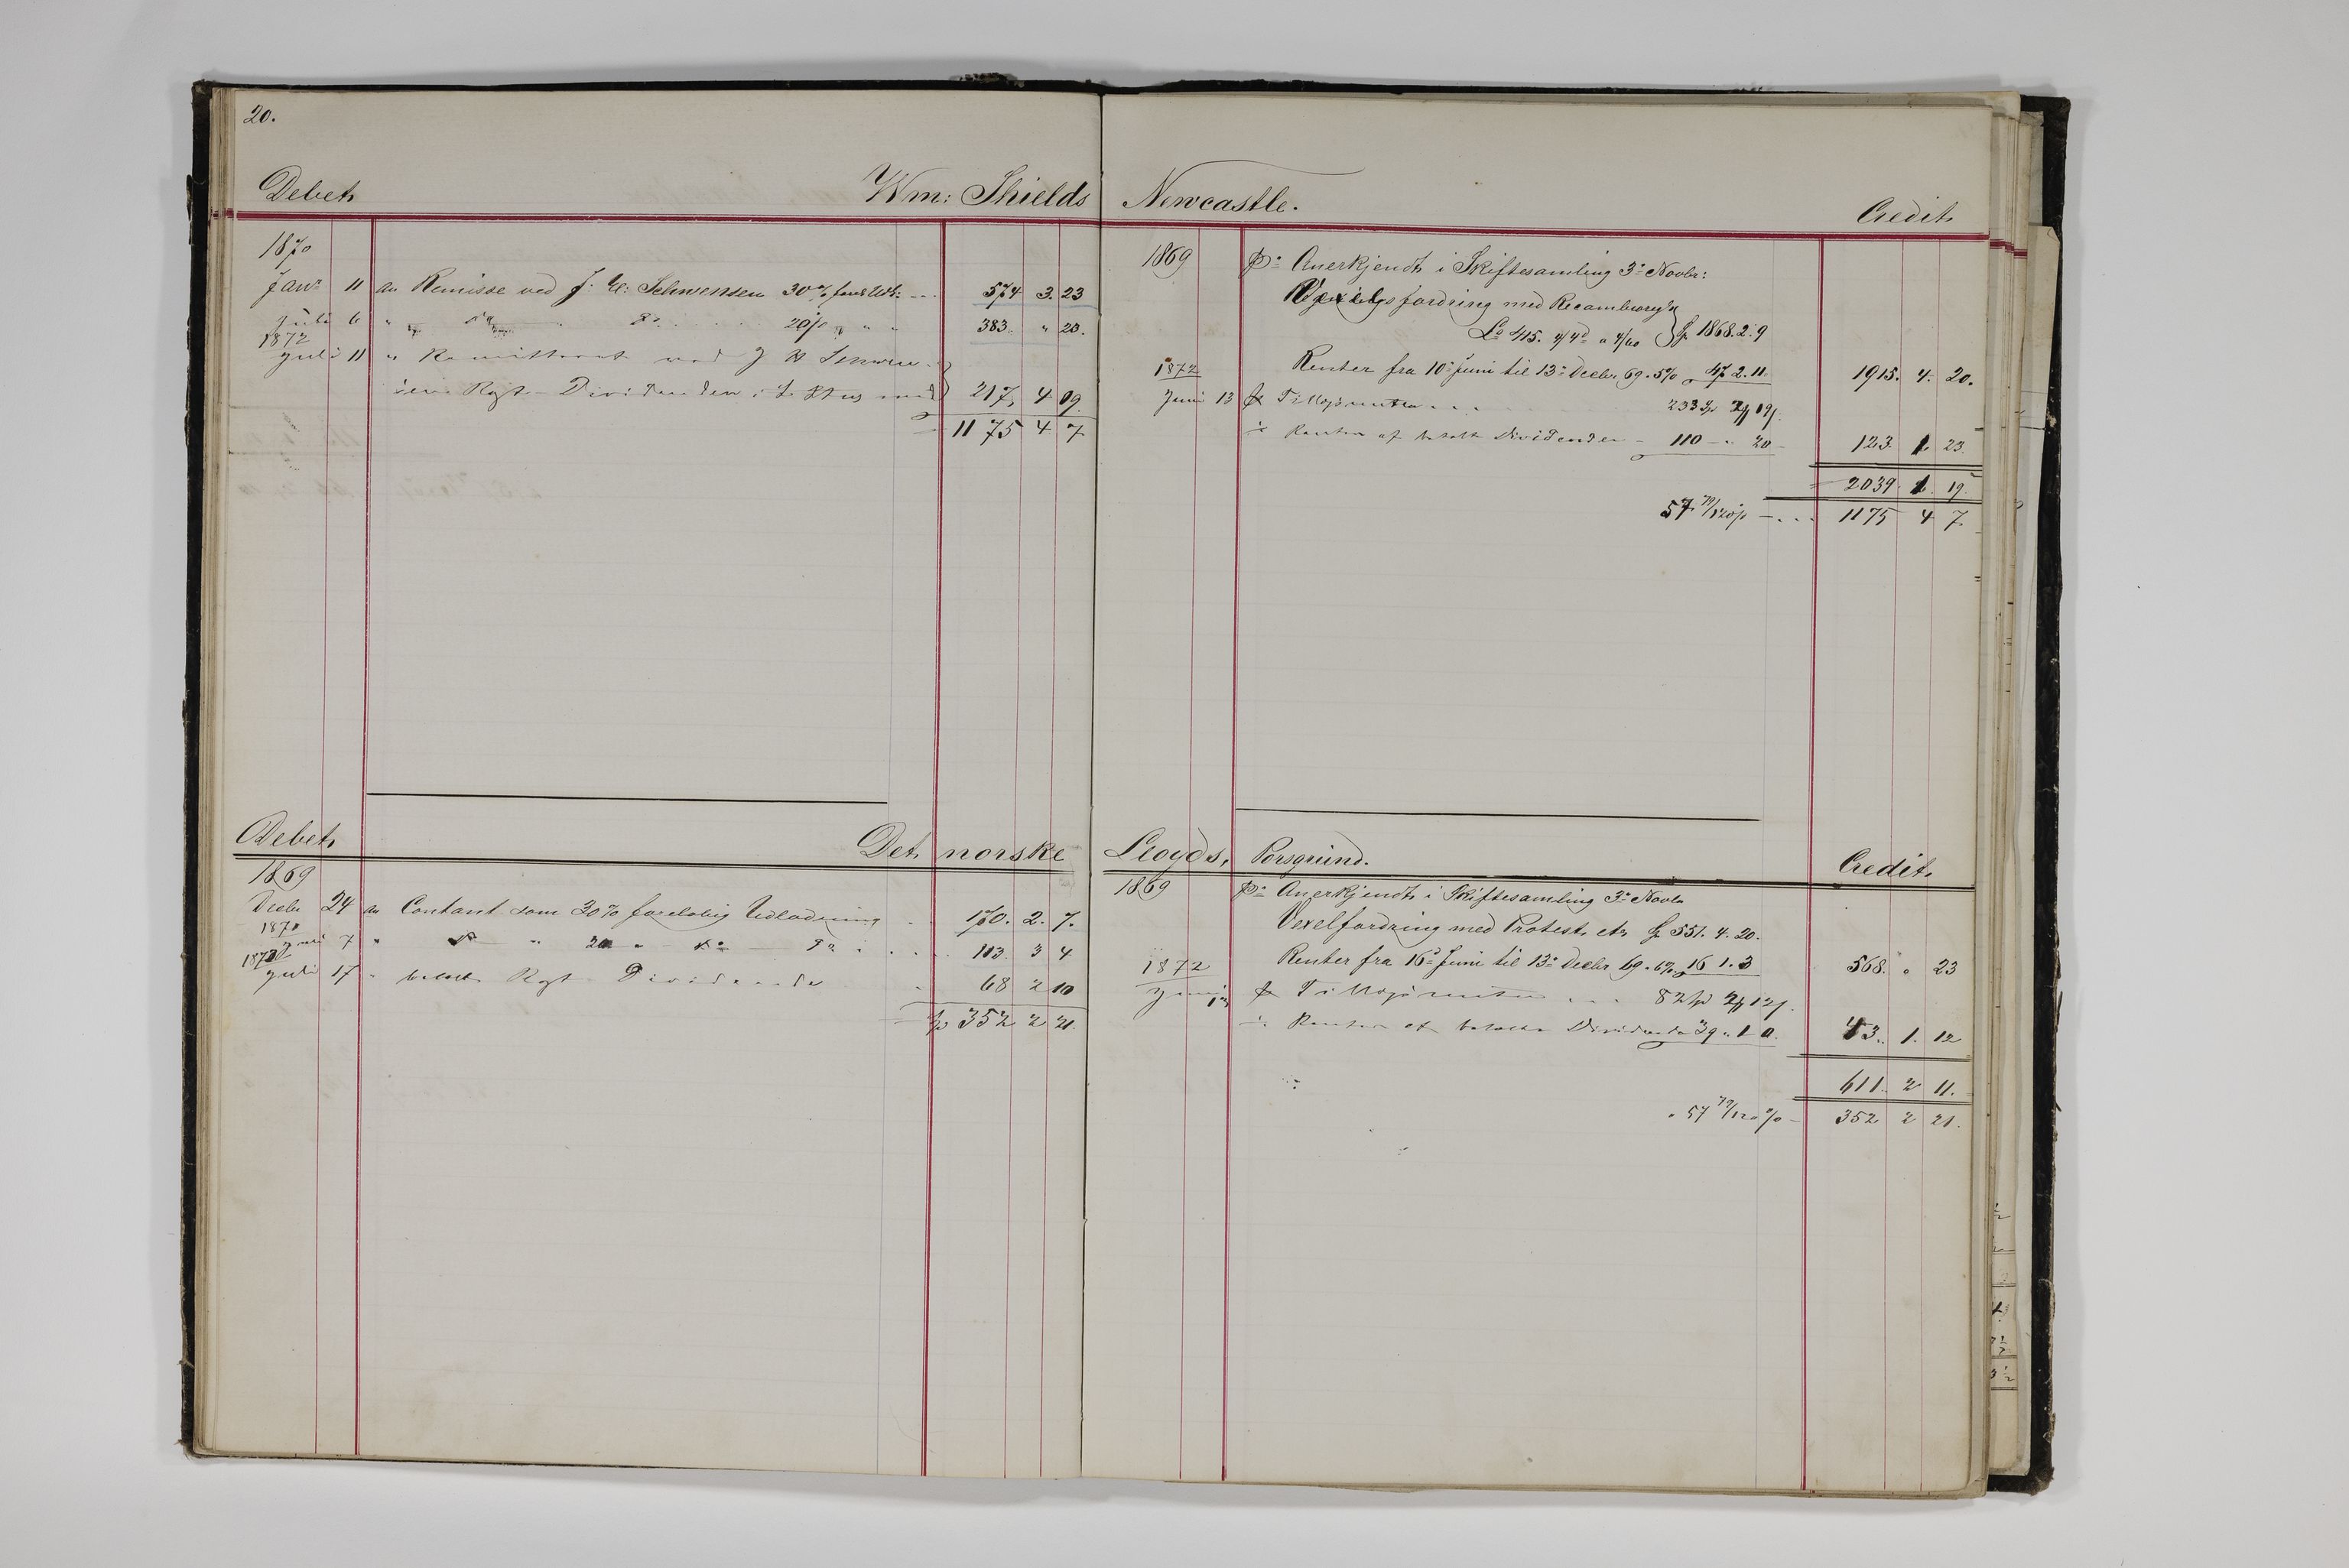 20.
Debet Wm: Shields Newcastle. Credit
1870
Janr 11 an Remisse ved J: H: Schwensen 30% forel. Udl: 574 3. 23
Juli 6 " do do 20% " " 383. " 23.
1872
Juli 11 " Remitteret ved J H Schwen-
sen Rest-Dividenden i 217 4 09
1175 4 7
1869 pr Anerkjendt i Skiftesamling 3die Novbr:
Vexelsfordring med Recambioregn
L 415. 4/4d a 4/60 } Sp 1868. 2. 9
Renter fra 10de Juni til 13de Decbr. 69. 5% " 47. 2. 11. 1915. 4. 20.
1872
Juni 13 Tillægsrenter 233 Sp 2 19
÷ Renter af betalte Dividender - 110 - " 20 - 123. 1 23.
2039. 1 19.
57 79/120 % - ... 1175 4 7.
Debet Det norske Lloyds, Porsgrund. Credit.
1869
Decbr 24 an Contant som 30% foreløbig Udlodning 170. 2. 7.
1870
Juli 7 " do " 20 " do do 113. 3 4
1872
Juli 17 " betalt Rest Dividende 68 2 10
Sp 352 2 21.
1869 pr Anerkjendt i Skiftesamling 3die Novbr
Vexelfordring med Protest. etc Sp 551. 4. 20.
Renter fra 16de Juni til 13de Decbr 69. 6% " 16 1. 3 568. " 23
1872
Juni 13 Tillægsrenter ... 82 Sp 2 12
÷ Renter af betalte Dividende 39 " 1 0. 43. 1. 12
611. 2 11.
" 57 79/120 % - 352 2 21.